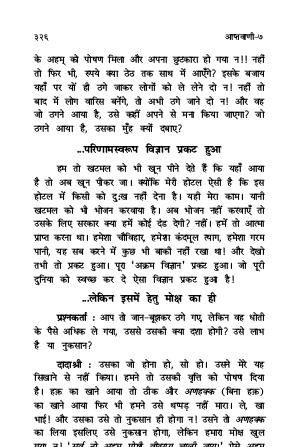 ३२६ आप्तवाणी-७
के अहम् को पोषण मिला और अपना छुटकारा हो गया न!! नहीं
तो फिर भी, रुपये क्या ठेठ तक साथ में आएँगे? इसके बजाय
यहाँ पर यों ही ठगे जाकर लोगों को ले लेने दो न! नहीं तो
बाद में लोग वारिस बनेंगे, तो अभी ठगे जाने दो न! और वह
जो ठगने आया है, उसे कहीं अपने से मना किया जाएगा? जो
ठगने आया है, उसका मुँह क्यों दबाए?
...परिणामस्वरूप विज्ञान प्रकट हुआ
हम तो खटमल को भी खून पीने देते हैं कि यहाँ आया
है तो अब खून पीकर जा। क्योंकि मेरी होटल ऐसी है कि इस
होटल में किसी को दुःख नहीं देना है। यही मेरा काम। यानी
खटमल को भी भोजन करवाया है। अब भोजन नहीं करवाएँ तो
उसके लिए सरकार क्या हमें कोई दंड देगी? नहीं। हमें तो आत्मा
प्राप्त करना था। हमेशा चौविहार, हमेशा कंदमूल त्याग, हमेशा गरम
पानी, यह सब करने में कुछ भी बाकी नहीं रखा था! और देखो
तभी तो प्रकट हुआ। पूरा 'अक्रम विज्ञान' प्रकट हुआ। जो पूरी
दुनिया को स्वच्छ कर दे ऐसा विज्ञान प्रकट हुआ है!
...लेकिन इसमें हेतु मोक्ष का ही
प्रश्नकर्ता : आप तो जान-बूझकर ठगे गए, लेकिन वह धोती
के पैसे अधिक ले गया, उससे उसकी क्या दशा होगी? उसे लाभ
है या नुकसान?
दादाश्री : उसका जो होना हो, सो हो। उसने मेरे यह
सिखाने से नहीं किया। हमने तो उसकी वृत्ति को पोषण दिया
है। हक़ का खाने आया तो ठीक और अणहक्क (बिना हक़)
का खाने आया फिर भी हमने उसे थप्पड़ नहीं मारा। ले, खा
भाई! और उसका उसे तो नुकसान ही होगा न! उसने तो अणहक्क
का लिया इसलिए उसे नुकसान होगा, लेकिन हमारा मोक्ष खुल